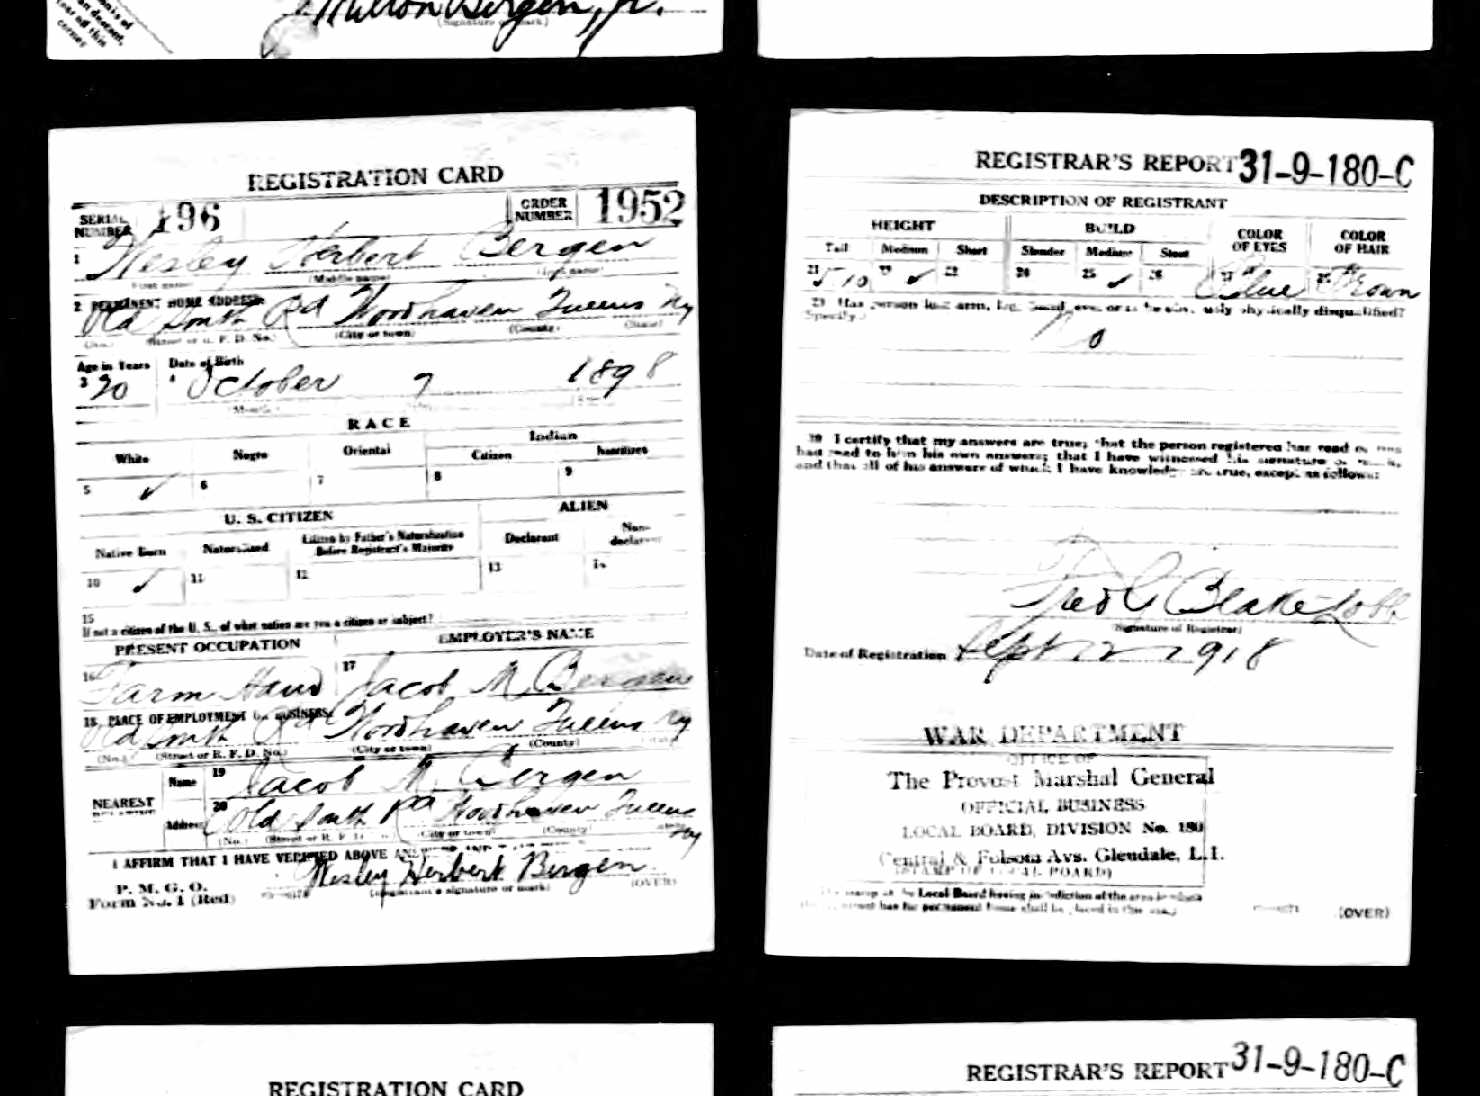 Milton Bergen, Jr.
(Signature or mark)
REGISTRATION CARD
SERIAL NUMBER 196 ORDER NUMBER 1952
1 Wesley Herbert Bergen
(Middle name)
2 PERMANENT HOME ADDRESS:
Old South Rd Woodhaven Queens Ny
(City or town) (County) (State)
Age in Years Date of Birth
3 20 4 October 7 1898
RACE
White Negro Oriental Indian
Citizen
5 ✓ 6 7 8 9
U. S. CITIZEN ALIEN
Native Born Naturalized Citizen by Father's Naturalization Before Registrant's Majority Declarant Non-declarant
10 ✓ 11 12 13 14
15
If not a citizen of the U. S., of what nation are you a citizen or subject?
PRESENT OCCUPATION EMPLOYER'S NAME
16 Farm Hand 17 Jacob M Bergen
18 PLACE OF EMPLOYMENT OR BUSINESS:
Old South Rd Woodhaven Queens Ny
(No.) (Street or R. F. D. No.) (City or town) (County)
NEAREST
Name 19 Jacob M Bergen
Address 20 Old South Rd Woodhaven Queens Ny
(No.) (City or town) (County)
I AFFIRM THAT I HAVE VERIFIED ABOVE
P. M. G. O.
Form No. 1 (Red) Wesley Herbert Bergen
(Registrant's signature or mark) (OVER)
REGISTRAR'S REPORT 31-9-180-C
DESCRIPTION OF REGISTRANT
HEIGHT BUILD COLOR OF EYES COLOR OF HAIR
Tall Medium Short Slender Medium Stout
21 5 10 22 ✓ 23 24 25 ✓ 26 27 Blue 28 Brown
29 Has person lost arm, leg, hand, eye, or is he obviously physically disqualified?
(Specify.)
No
30 I certify that my answers are true; that the person registered has read or has
had read to him his own answers; that I have witnessed his signature or mark,
and that all of his answers of which I have knowledge are true, except as follows:
Fred G Blake
(Signature of Registrar)
Date of Registration Sept 12 1918
WAR DEPARTMENT
OFFICE OF
The Provost Marshal General
OFFICIAL BUSINESS
LOCAL BOARD, DIVISION No. 180
Central & Folsom Avs. Glendale, L.I.
(STAMP OF LOCAL BOARD)
(OVER)
REGISTRATION CARD
REGISTRAR'S REPORT 31-9-180-C